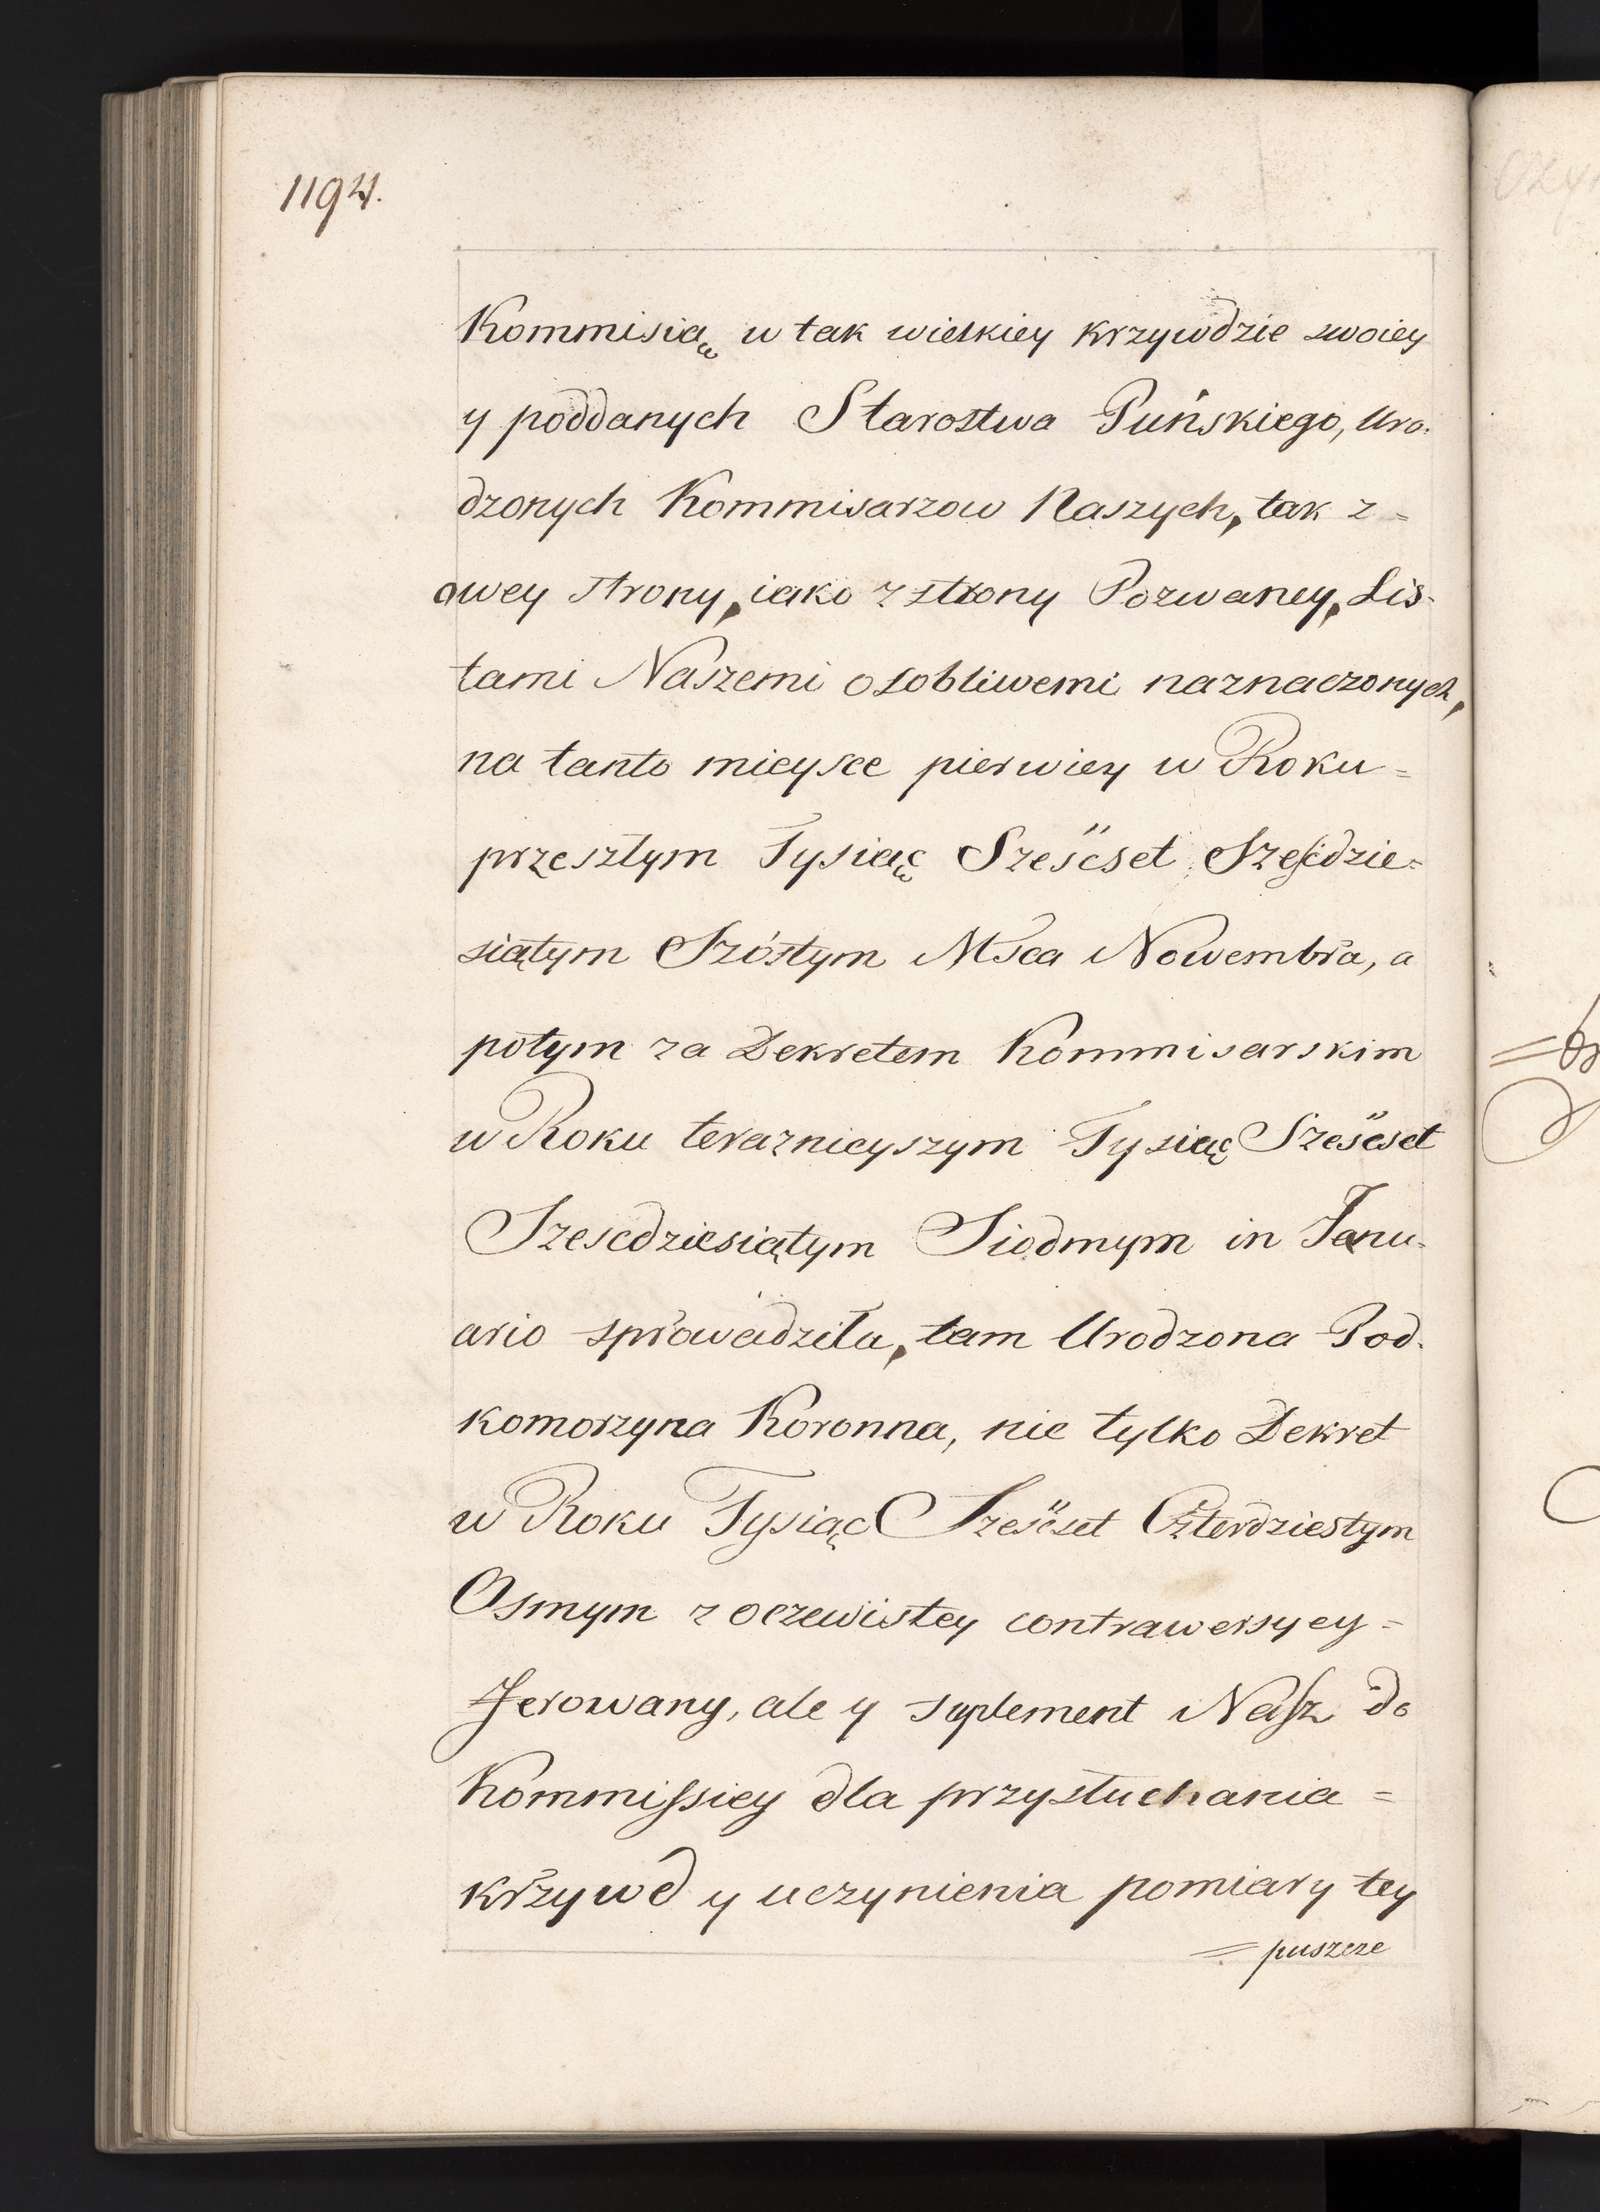 1194.
Kommisią w tak wielkiey krzywdzie swoiey
y poddanych Starostwa Puńskiego, Uro-
dzonych Kommisarzow Naszych, tak z =
owey strony, iako z strony Pozwaney, Lis-
tami Naszemi osobliwemi naznaczonych,
na tanto mieysce pierwiey w Roku =
przeszłym Tysiąc Sześćset Sześćdzie=
siątym Szóstym Msca Nowembra, a
potym za Dekretem Kommisarskim
w Roku teraznieyszym Tysiąc Sześćset
Szescdziesiątym Siodmym in Janu-
ario sprowadziła, tam Urodzona Pod-
komorzyna Koronna, nie tylko Dekret
w Roku Tysiąc Sześćset Czterdziestym
Osmym z oczewistey contrawersyey =
ferowany, ale y suplement Nasz do
Kommissiey dla przysłuchania =
krzywd y uczynienia pomiary tey
= puszcze